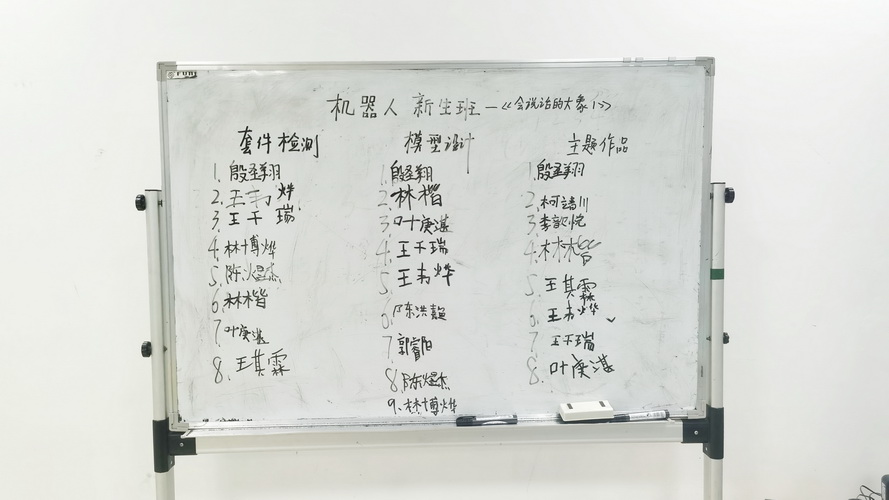 机器人 新生班 —《会说话的大象1》
套件检测
1. 殷圣翔
2. 王韦烨
3. 王千瑞
4. 林博烨
5. 陈焜杰
6. 林楷
7. 叶庚湛
8. 王其霖
模型设计
1. 殷圣翔
2. 林楷
3. 叶庚湛
4. 王千瑞
5. 王韦烨
6. 陈浩
7. 郭睿阳
8. 陈焜杰
9. 林博烨
主题作品
1. 殷圣翔
2. 柯靖川
3. 李歆悦
4. 林楷
5. 王其霖
6. 王韦烨
7. 王千瑞
8. 叶庚湛